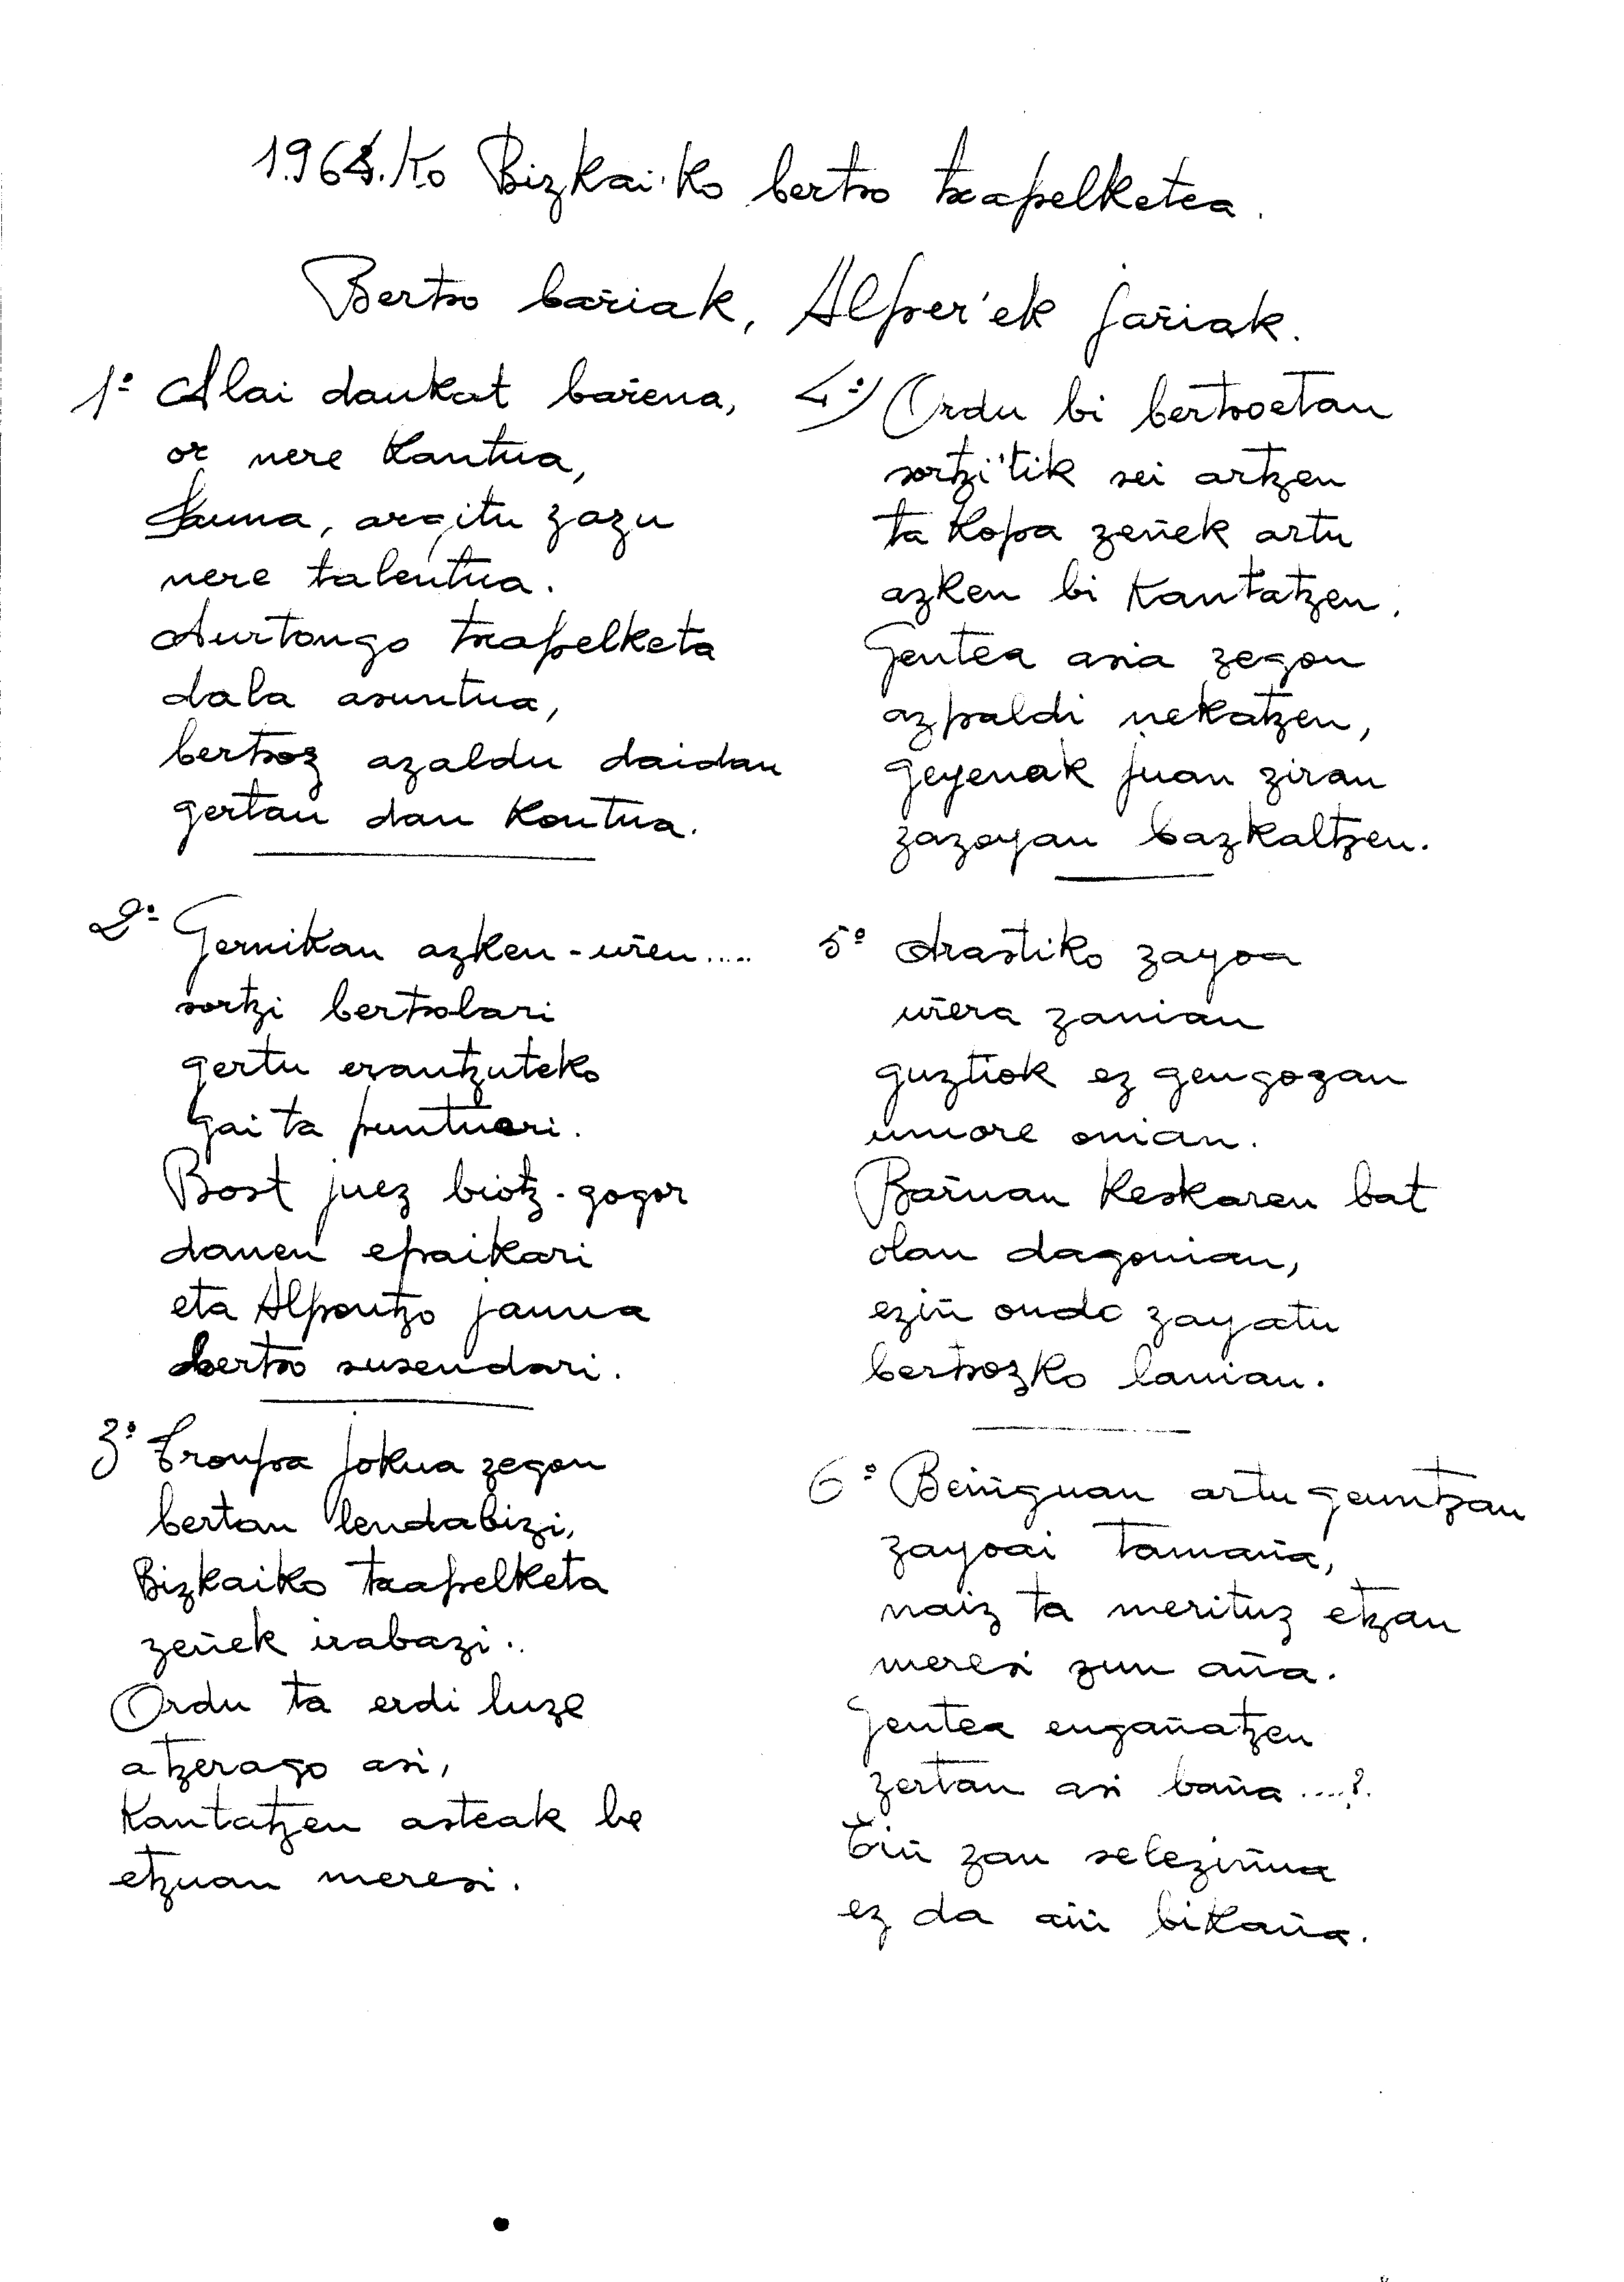 1.964.ko Bizkai'ko bertso txapelketea.
Bertso bar̃iak, Alper'ek jar̃iak.
1º Alai daukat bar̃ena,
or nere kantua,
Jauna, argitu zazu
nere talentua.
Aurtongo txapelketa
dala asuntua,
bertsoz azaldu daidan
gertau dan kontua.
2º Gernikan azken-ur̃en.....
sortzi bertsolari
gertu erantzuteko
gai ta puntuari.
Bost juez biotz-gogor
danen epaikari
eta Alpontzo jauna
bertso susendari.
3º Tronpa jokua zegon
bertan lendabizi,
Bizkaiko txapelketa
zeñek irabazi..
Ordu ta erdi luze
atzerago asi,
kantatzen asteak be
etzuan meresi.
4º) Ordu bi bertsoetan
sortzi'tik sei artzen
ta kopa zeñek artu
azken bi kantatzen.
Gentea asia zegon
azpaldi nekatzen,
geyenak juan ziran
zazoyan bazkaltzen.
5º Arastiko zayoa
ur̃era zanian
guztiok ez gengozan
umore onian.
Bar̃uan keskaren bat
olan dagonian,
eziñ ondo zayatu
bertsozko lanian.
6º Beiñguan artu geuntzan
zayoai tamaña,
naiz ta merituz etzan
meresi zun aña.
Gentea engañatzen
zertan asi baña ....?.
Eiñ zan seleziñua
ez da aiñ bikaña.